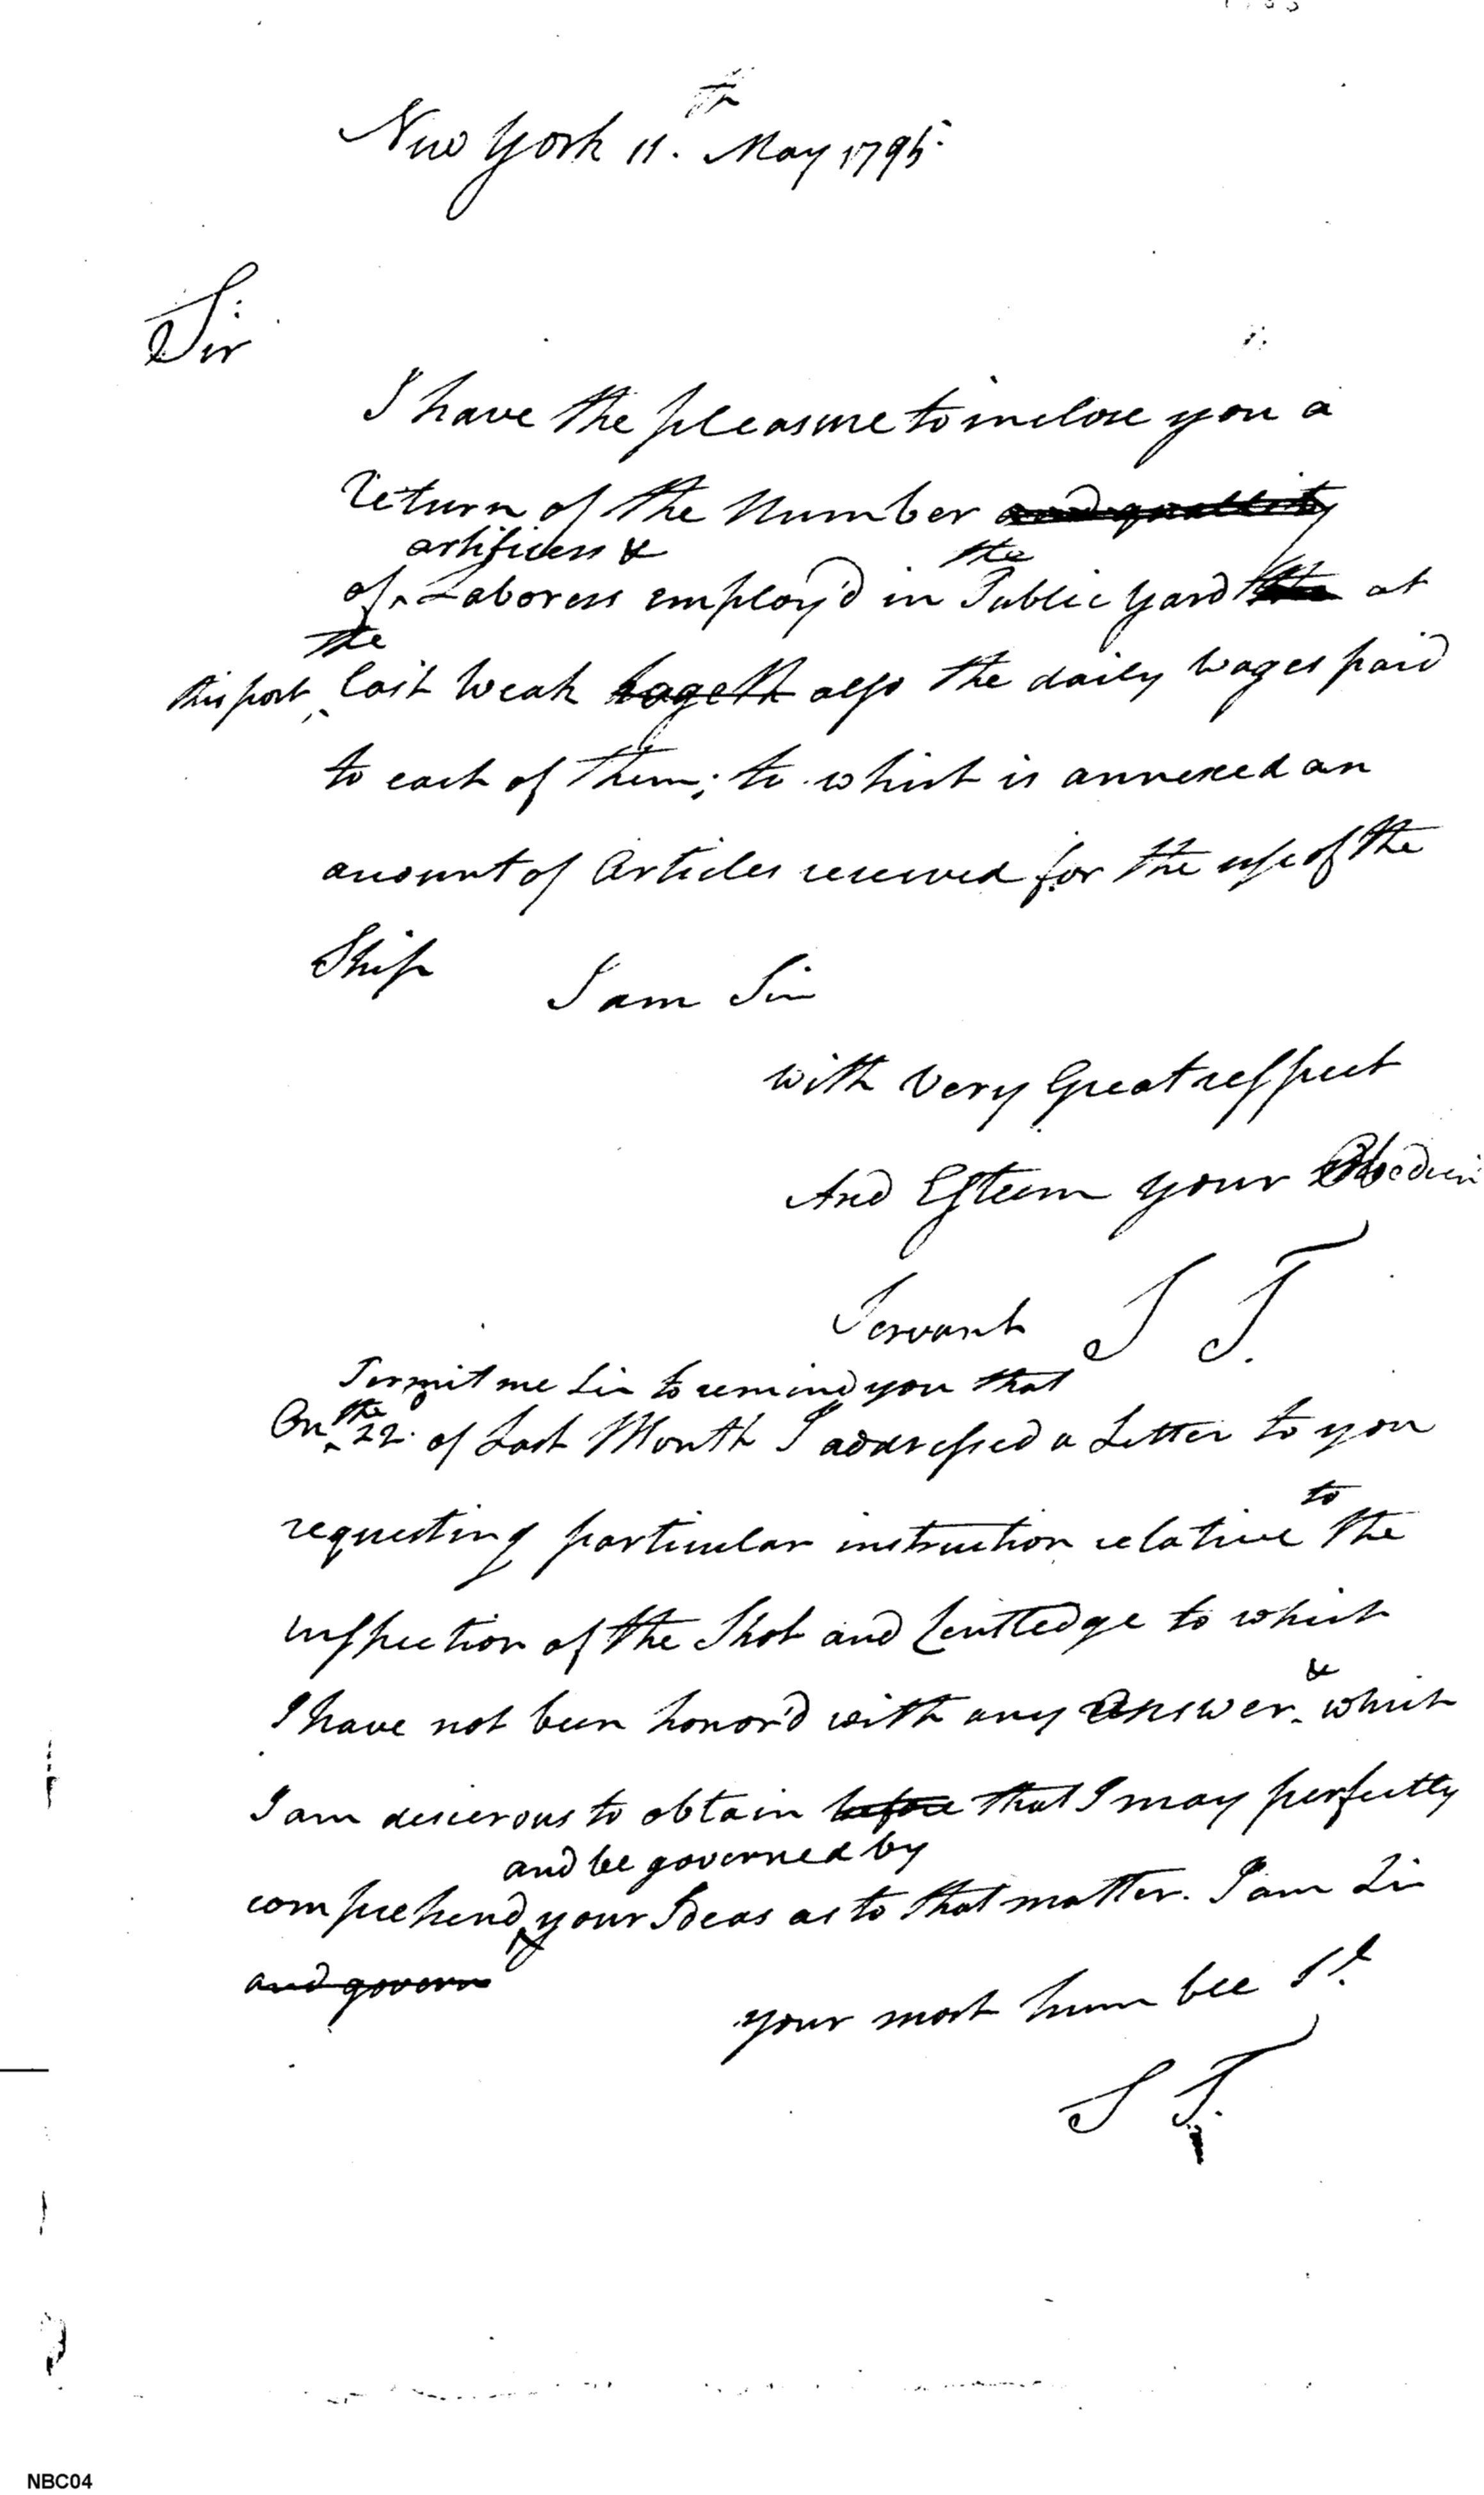 New York 11.th May 1795.
Sir
I have the pleasure to inclose you a
return of the Number and quallity
artificers & the
of Laborers employ'd in Public Yard at
the
this port, last Weak togeth also the daily Wages paid
to each of them; to which is annexed an
acount of Articles received for the use of the
Ship
I am Sir
with Very Great respect
And Esteem your Obedien
Servant S T
Permit me Sir to remind you that
On the 22. of Last Month I addressed a Letter to you
to
requesting particular instruction relative the
inspection of the Shot and Kentledge to which
&
I have not been honor'd with any Answer. which
I am desierous to obtain before that I may perfectly
and be governed by
comprehend your Ideas as to that matter. I am Sir
and govern
your most hum ble St.
S T.
NBC04